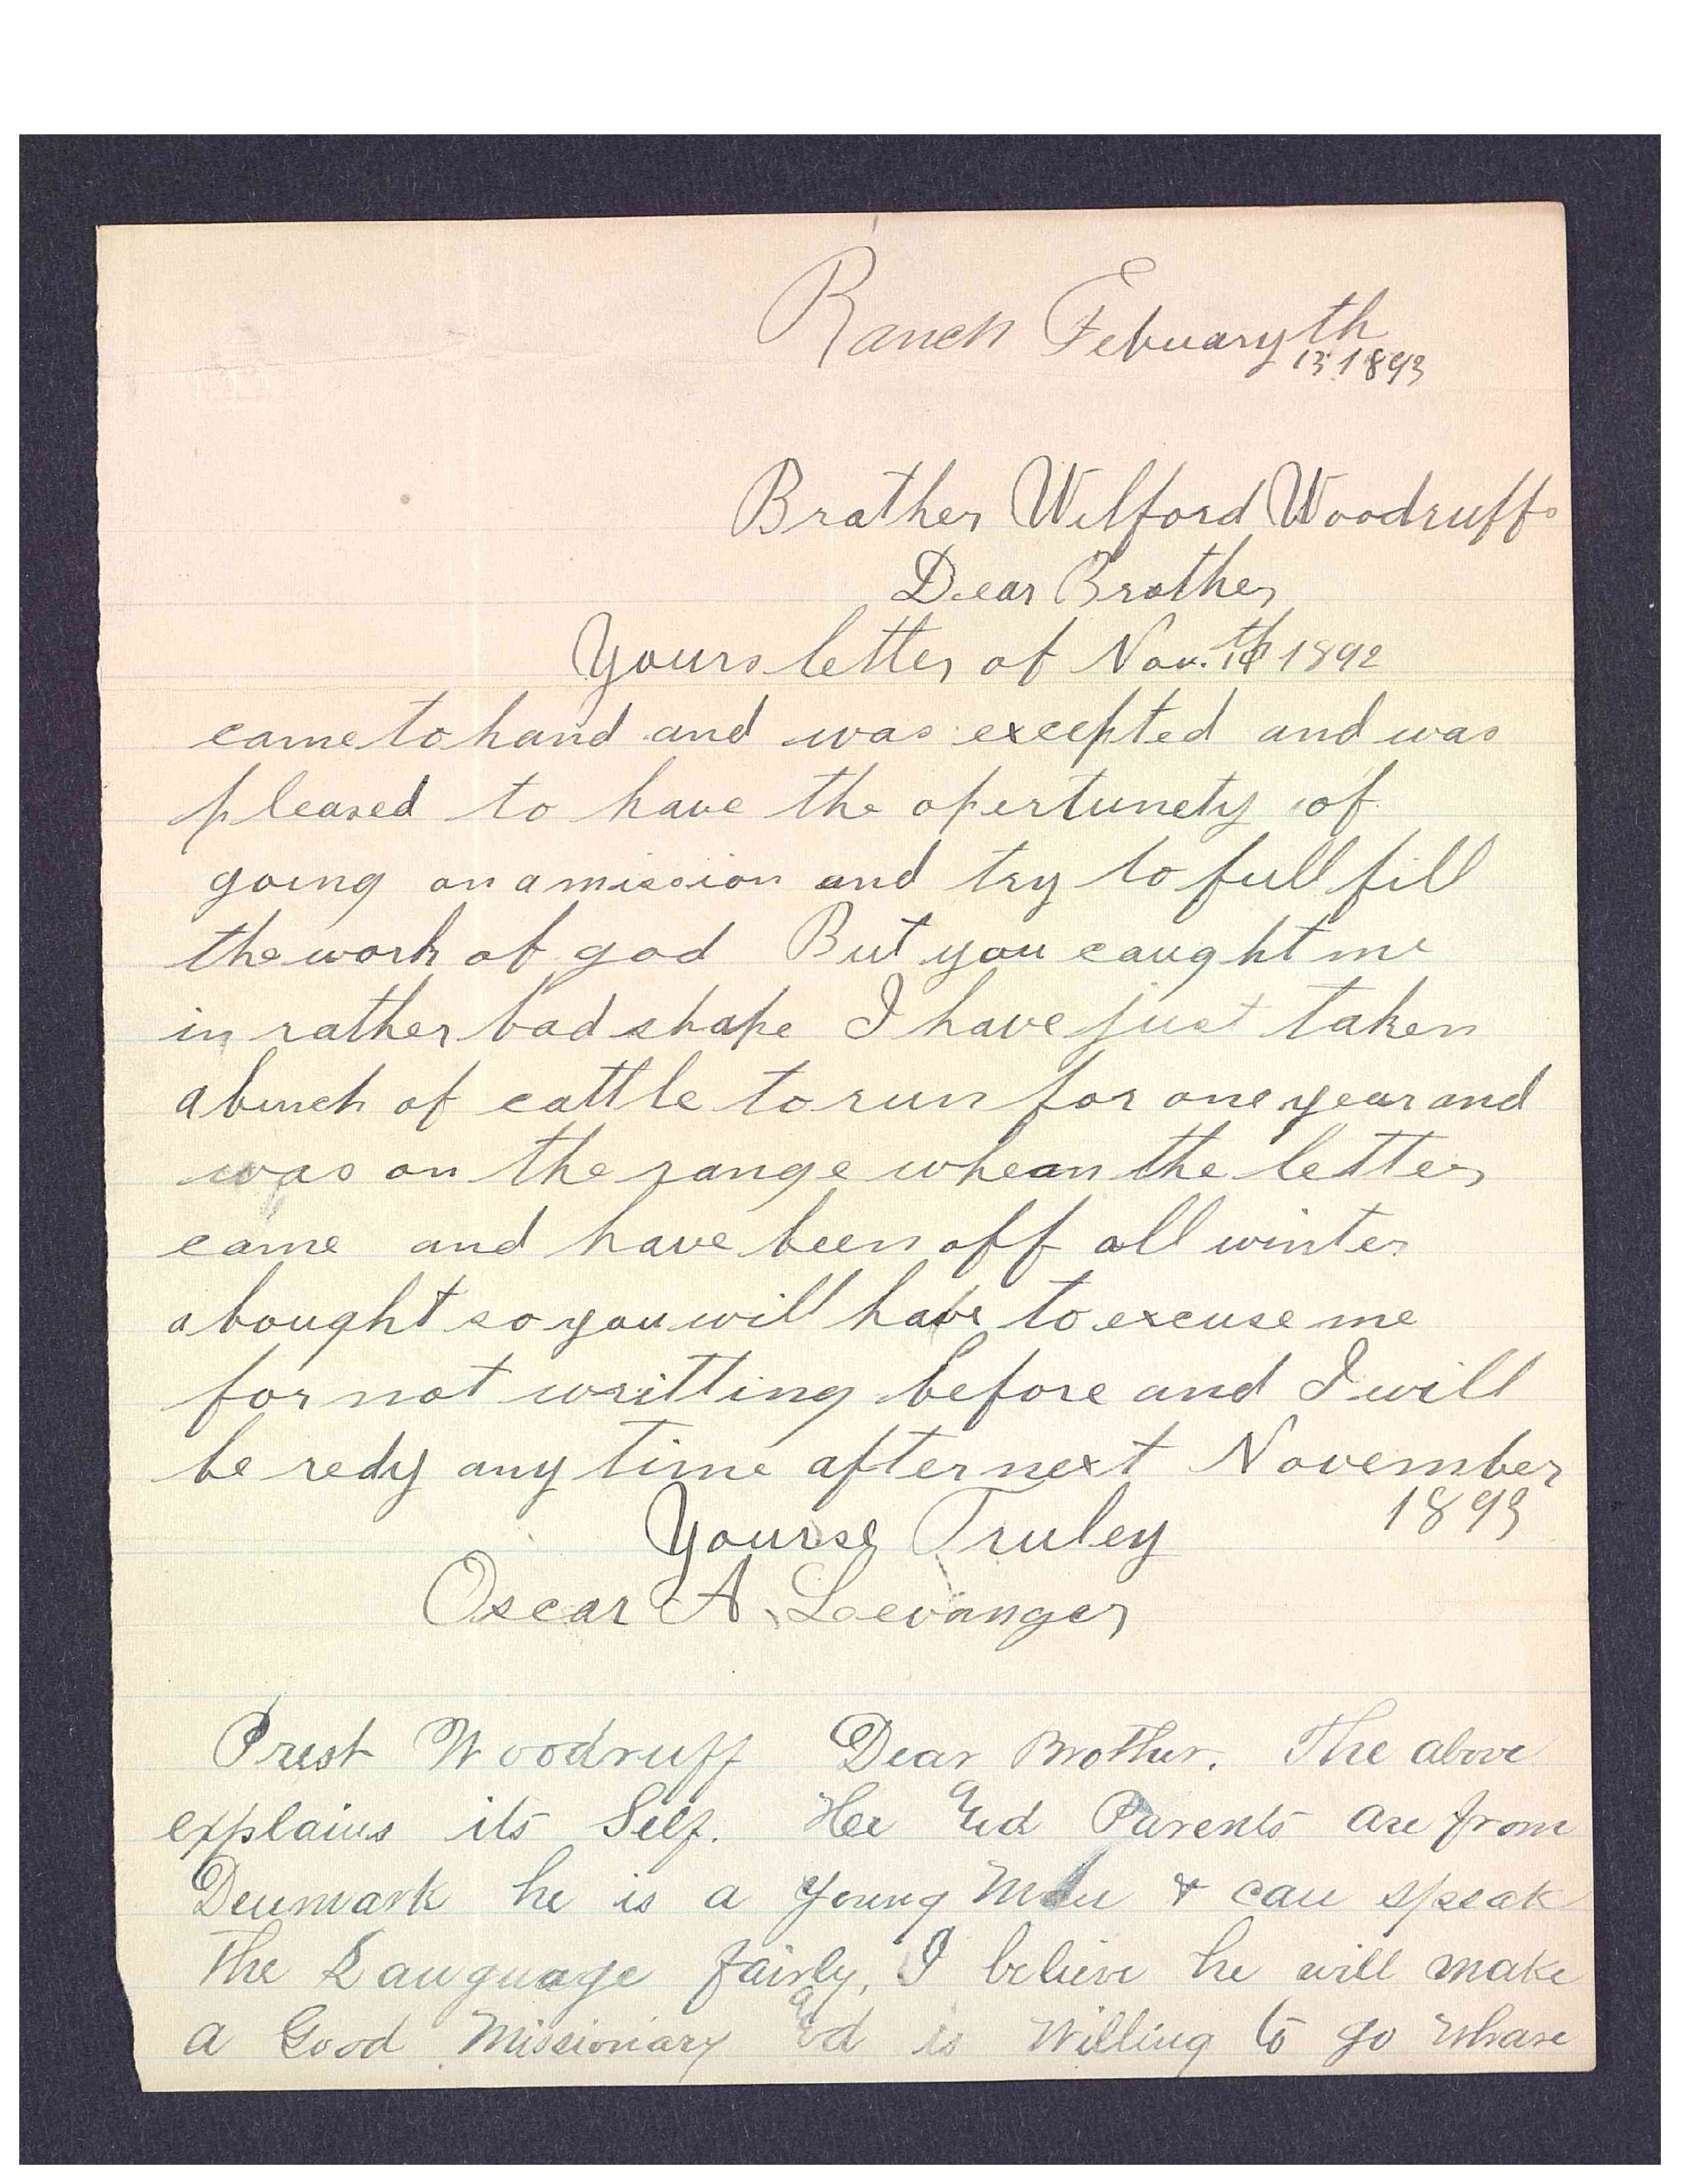 Ranch Febuary th
13 1893
Brather Wilford Woodruff
Dear Brother
Yours letter of Nov. th 1892
came to hand and was excepted and was
pleased to have the opertunety of
going on a mission and try to full fill
the work of god But you caught me
in rather bad shape I have just taken
a bunch of cattle to run for one year and
was on the range whean the letter
came and have been off all winter
abought so you will have to excuse me
for not writting before and I will
be redy any time after next November
1893
Yourse Truley
Oscar A. Loevanger
Prest Woodruff Dear Brother. The above
explains its Self. Hee and Parents are from
Denmark he is a Young Man & can speak
the Language fairly, I believe he will make
a Good Missionary and is Willing to go whare